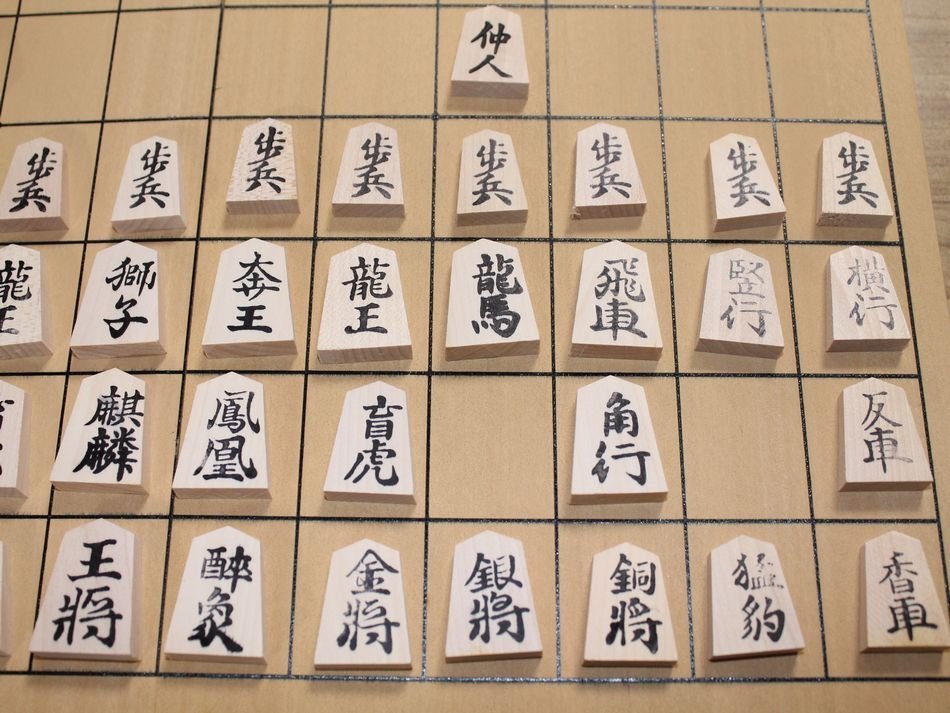 仲人
歩兵
歩兵
歩兵
歩兵
歩兵
歩兵
歩兵
歩兵
龍王
獅子
奔王
龍王
龍馬
飛車
竪行
横行
麒麟
鳳凰
盲虎
角行
反車
王將
醉象
金將
銀將
銅將
猛豹
香車